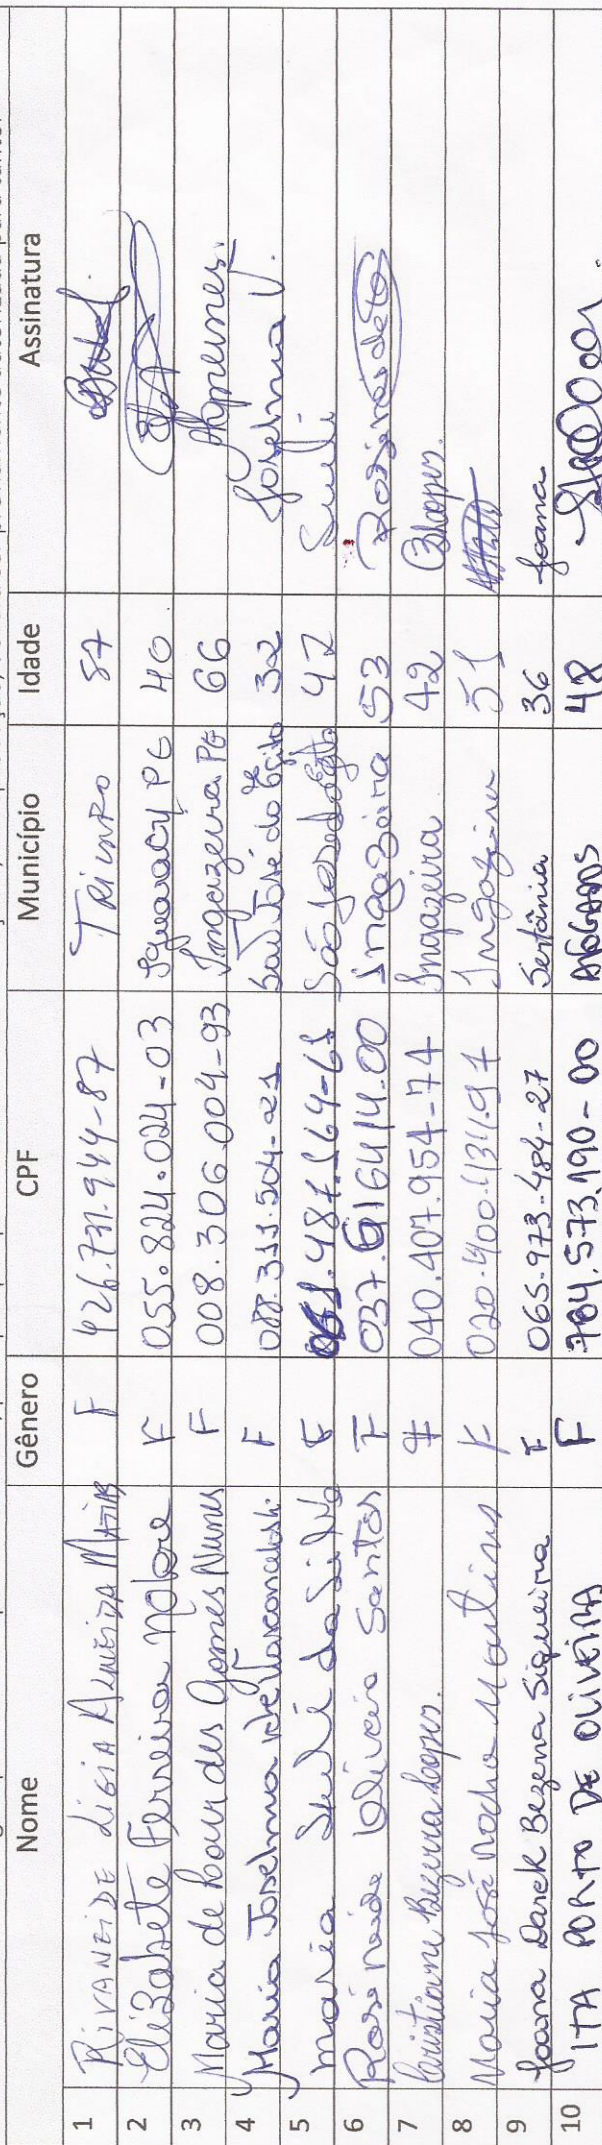 Nome Gênero CPF Município Idade Assinatura
1 RIVANEIDE LIGIA ALMEIDA MATIAS F 426.771.944-87 TRIUNFO 87
2 Elizabete Ferreira Nobre F 055.824.024-03 Iguaracy PE 40
3 Maria de Lourdes Gomes Nunes F 008.306.004-93 Ingazeira PE 66
4 Maria Joselma de Vasconcelos F 088.311.504-21 São José do Egito 32 Joselma V.
5 maria Sueli da Silva F 061.487.164-61 São José do Egito 47 Sueli
6 Rosineide Oliveira Santos F 037.616414.00 Ingazeira 53
7 Cristiane Bezerra Lopes. F 040.407.954-74 Ingazeira 42 CBLopes.
8 Maria José Rocha Martins F 020.400.434.97 Ingazeira 51
9 Joana Darck Bezerra Siqueira F 065.973.484-27 Sertânia 36 Joana
10 ITA PORTO DE OLIVEIRA F 704.573.190-00 AFOGADOS 48